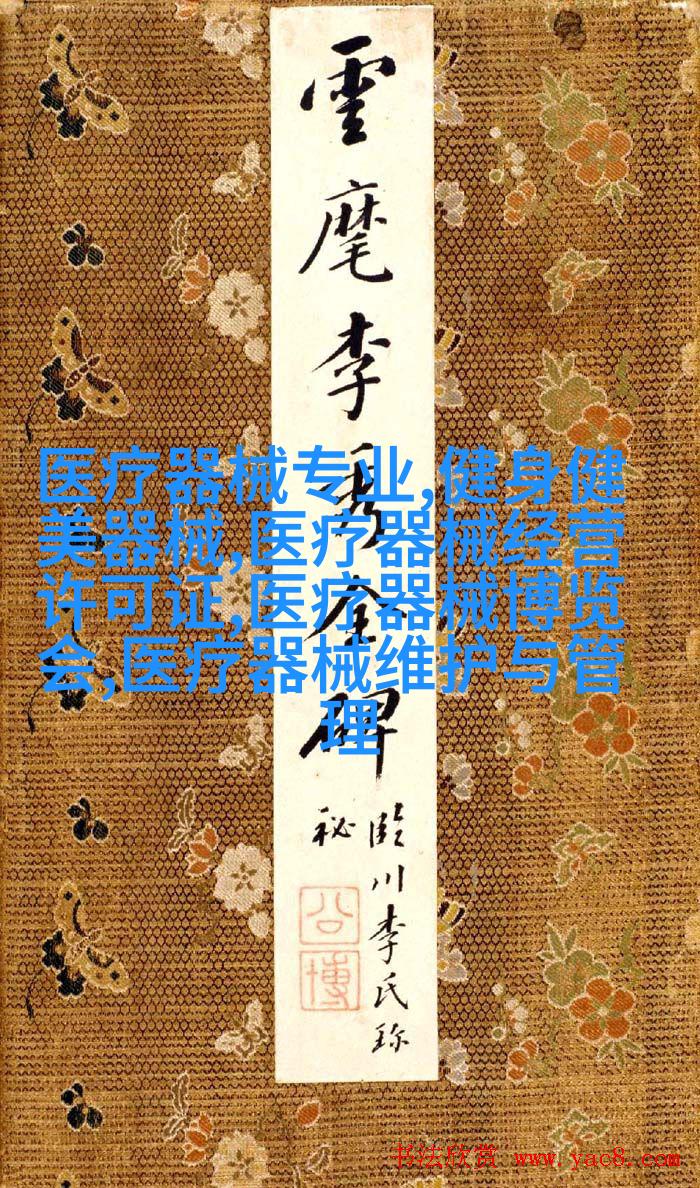 雲麾李秀全碑
臨川李氏珎
秘
公博
医疗器械专业,健身健
美器械,医疗器械经营
许可证,医疗器械博览
会,医疗器械维护与管
理
书法欣赏 www.yac8.com